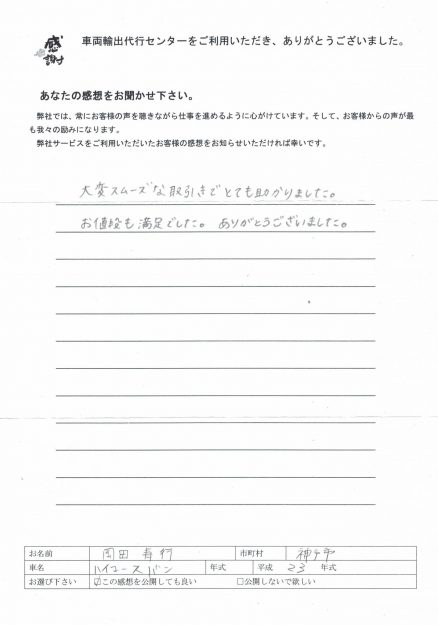 感謝
車両輸出代行センターをご利用いただき、ありがとうございました。
あなたの感想をお聞かせ下さい。
弊社では、常にお客様の声を聴きながら仕事を進めるように心がけています。そして、お客様からの声が最
も我々の励みになります。
弊社サービスをご利用いただいたお客様の感想をお知らせいただければ幸いです。
大変スムーズな取引きでとても助かりました。
お値段も満足でした。 ありがとうございました。
お名前 岡田 寿行 市町村 神戸市
車名 ハイエースバン 年式 平成 23 年式
お選び下さい ☑この感想を公開しても良い □公開しないで欲しい